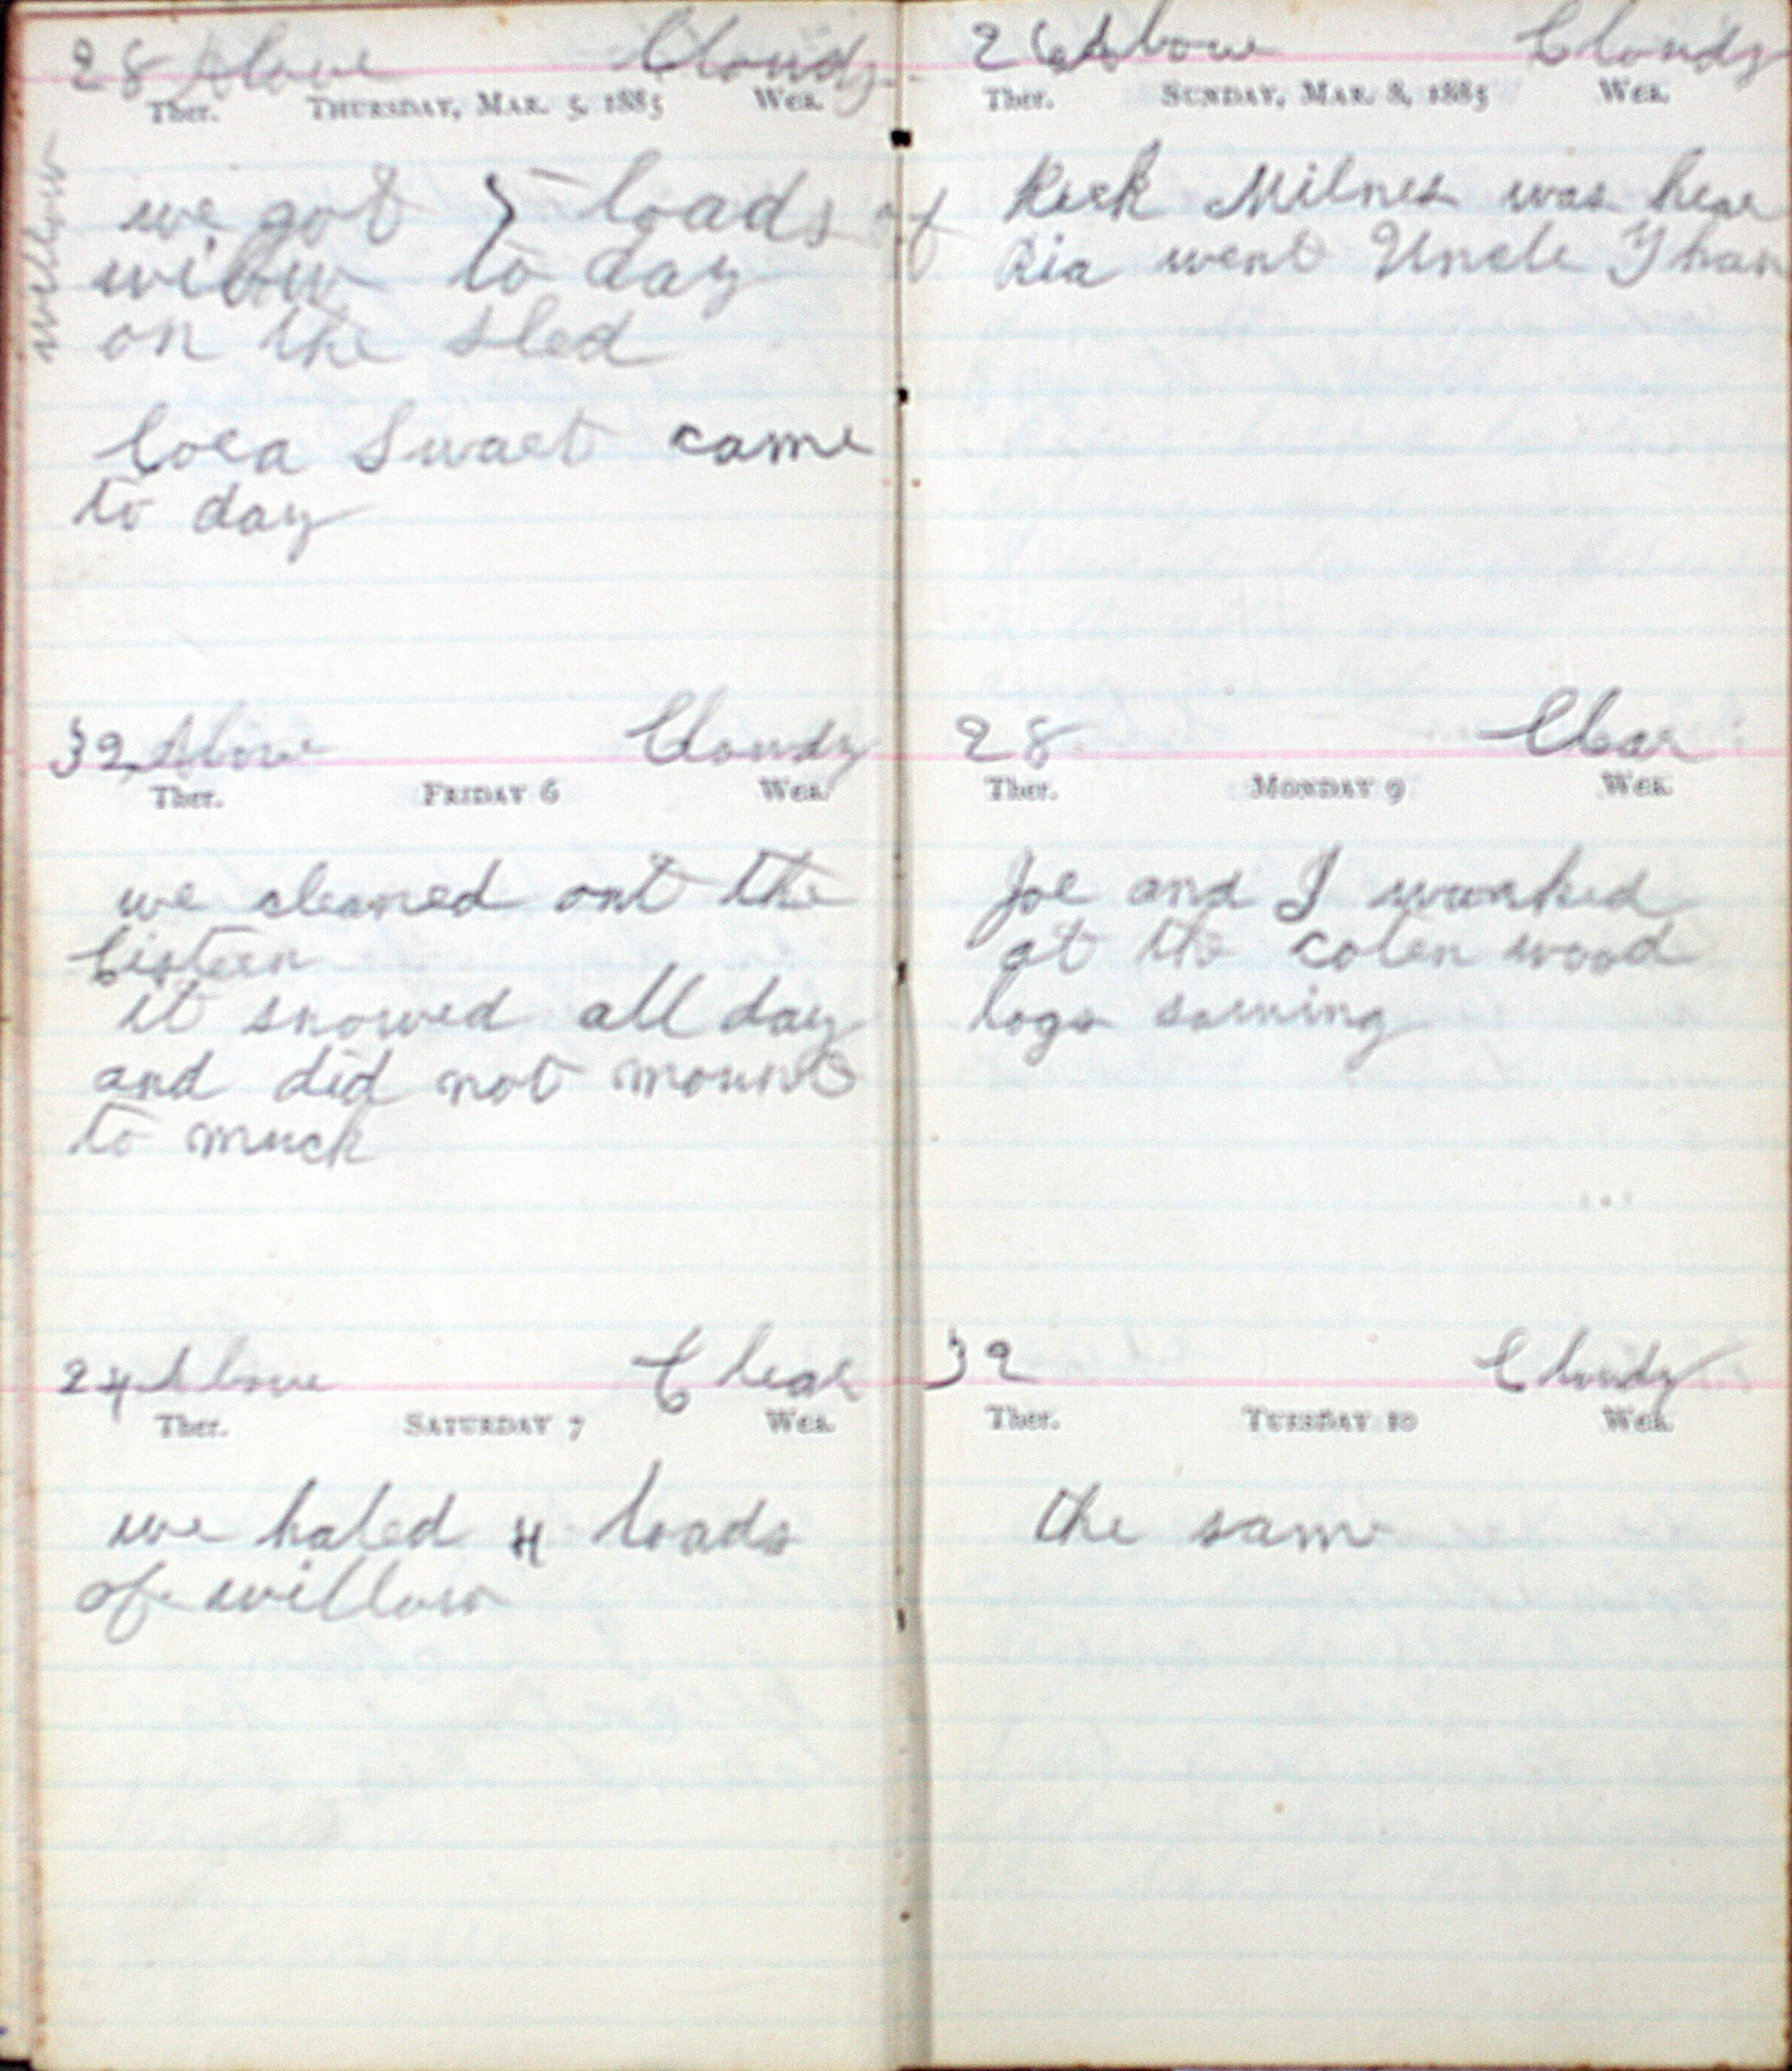 28 Above Cloudy
Ther. THURSDAY, MAR. 5, 1885 Wea.
willow
we got 5 loads of
willow to day
on the sled
Cora Swart came
to day
32 Above Cloudy
Ther. FRIDAY 6 Wea.
we cleaned out the
Cistern
it snowed all day
and did not mount
to much
24 Above Clear
Ther. SATURDAY 7 Wea.
we haled 4 loads
of willow
26 Above Cloudy
Ther. SUNDAY, MAR. 8, 1885 Wea.
Milnes was hear
Ria went Uncle
28 Clear
Ther. MONDAY 9 Wea.
Joe and I wurked
at the coten wood
logs sawing
32 Cloudy
Ther. TUESDAY 10 Wea.
the same